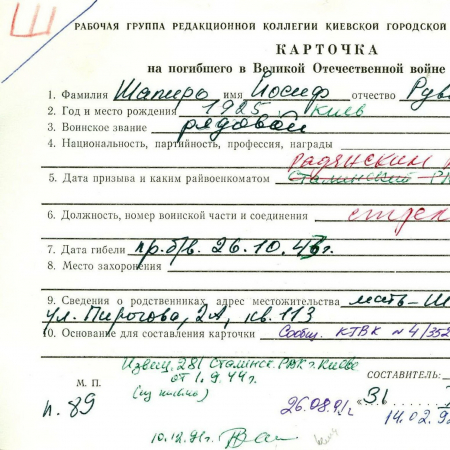 Ш
РАБОЧАЯ ГРУППА РЕДАКЦИОННОЙ КОЛЛЕГИИ КИЕВСКОЙ ГОРОДСКОЙ
КАРТОЧКА
на погибшего в Великой Отечественной войне
1. Фамилия Шапиро имя Иосиф отчество Рув
2. Год и место рождения 1925. Киев
3. Воинское звание рядовой
4. Национальность, партийность, профессия, награды
радянским
5. Дата призыва и каким райвоенкоматом Сталинский РВК
6. Должность, номер воинской части и соединения стрек
7. Дата гибели пр.б/в. 26.10.43г.
8. Место захоронения
9. Сведения о родственниках, адрес местожительства мать-Ш
ул. Пирогова, 2А, кв. 113
10. Основание для составления карточки Сообщ. КТВК №4/352
Извещ. 281 Сталинск. РВК г. Киева
от 1.9.44г.
СОСТАВИТЕЛЬ:
М. П.
п. 89
26.08.91г
"31
14.02.9
10.12.91г.